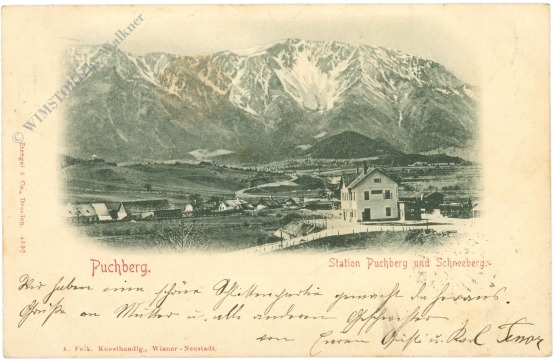 WIMSTORE by Walkner
© Stengel & Co., Dresden 4692
Puchberg.
Station Puchberg und Schneeberg.
Wir haben eine schöne Schlittenpartie gemacht die heraus.
Grüße an Mutter u. alle anderen Geschwister
von Euren Gusti u. Karl
A. Folk, Kunsthandlg., Wiener-Neustadt.